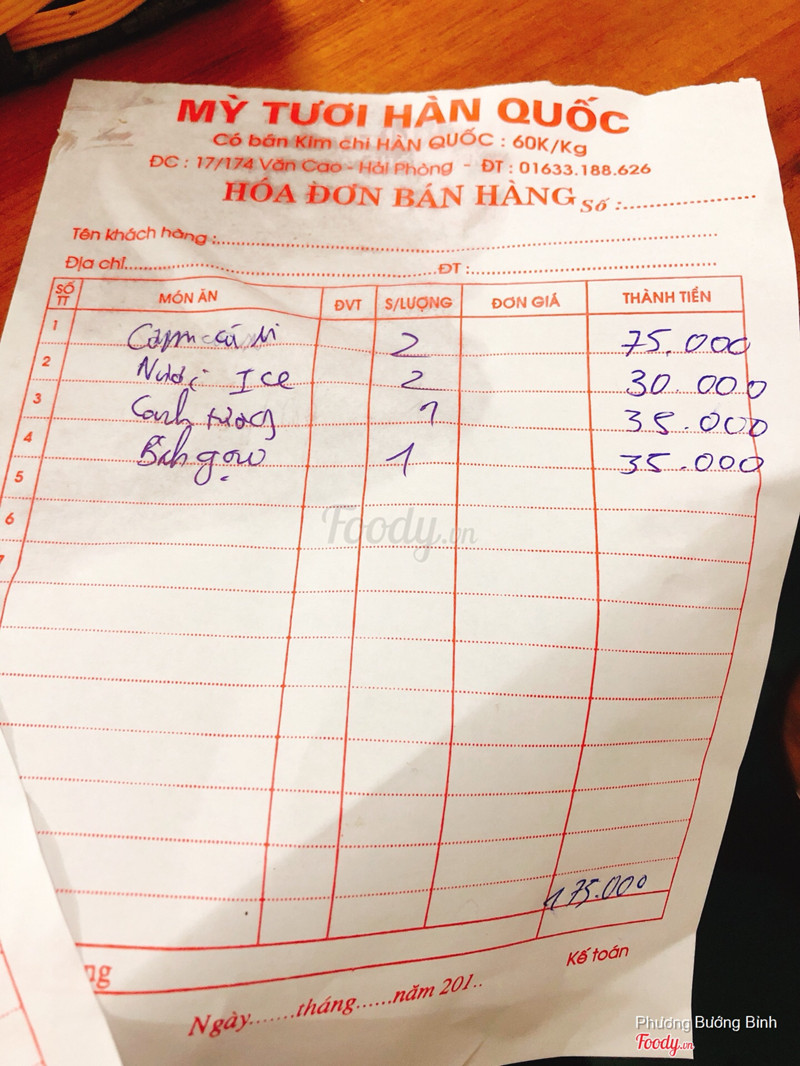 MỲ TƯƠI HÀN QUỐC
Có bán Kim chi HÀN QUỐC : 60K/Kg
ĐC : 17/174 Văn Cao - Hải Phòng - ĐT : 01633.188.626
HÓA ĐƠN BÁN HÀNG Số :
Tên khách hàng :
Địa chỉ ĐT :
SỐ TT MÓN ĂN ĐVT S/LƯỢNG ĐƠN GIÁ THÀNH TIỀN
1 2 75.000
2 Nước ICE 2 30.000
3 Canh tương 1 35.000
4 Bánh gạo 1 35.000
5
6
7
Foody.vn
175.000
ng
Kế toán
Ngày.......tháng......năm 201..
Phương Bướng Bình
Foody.vn